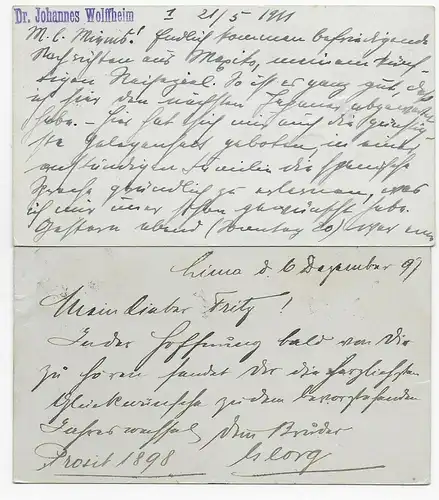 Dr. Johannes Wolffheim
1 21/5 1911
M. l. Endlich kommen befriedigende
Nachrichten aus meinem
Reiseziel. So ist es ganz gut, daß
ich hier den nächsten abgewartet
habe. – Hier hat sich mir auch die
ste Gelegenheit geboten, in einer
anständigen Familie die spanische
Sprache gründlich zu erlernen, was
ich mir immer schon gewünscht habe.
Gestern abend (Sonntag 20) war
Lima d. 6 Dezember 97
Mein lieber Fritz!
In der Hoffnung bald von Dir
zu hören sendet Dir die herzlichsten
Glückwünsche zu dem bevorstehenden
Jahreswechsel Dein Bruder
Prosit 1898 Georg